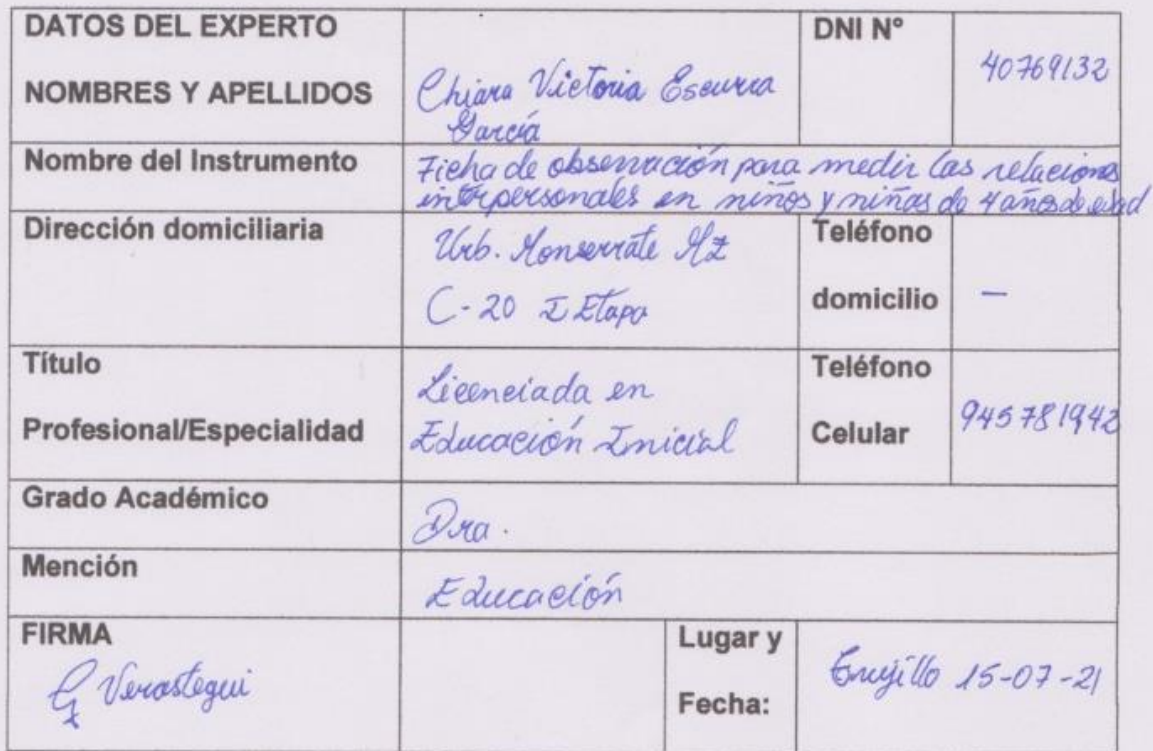 DATOS DEL EXPERTO
NOMBRES Y APELLIDOS
Chiara Victoria Escurra
García
DNI N°
40769132
Nombre del Instrumento
Ficha de observación para medir las relaciones
interpersonales en niños y niñas de 4 años de edad
Dirección domiciliaria
Urb. Monserrate Mz
C-20 I Etapa
Teléfono
domicilio
—
Título
Profesional/Especialidad
Licenciada en
Educación Inicial
Teléfono
Celular
945781942
Grado Académico
Dra.
Mención
Educación
FIRMA
Verastegui
Lugar y
Fecha:
Trujillo 15-07-21